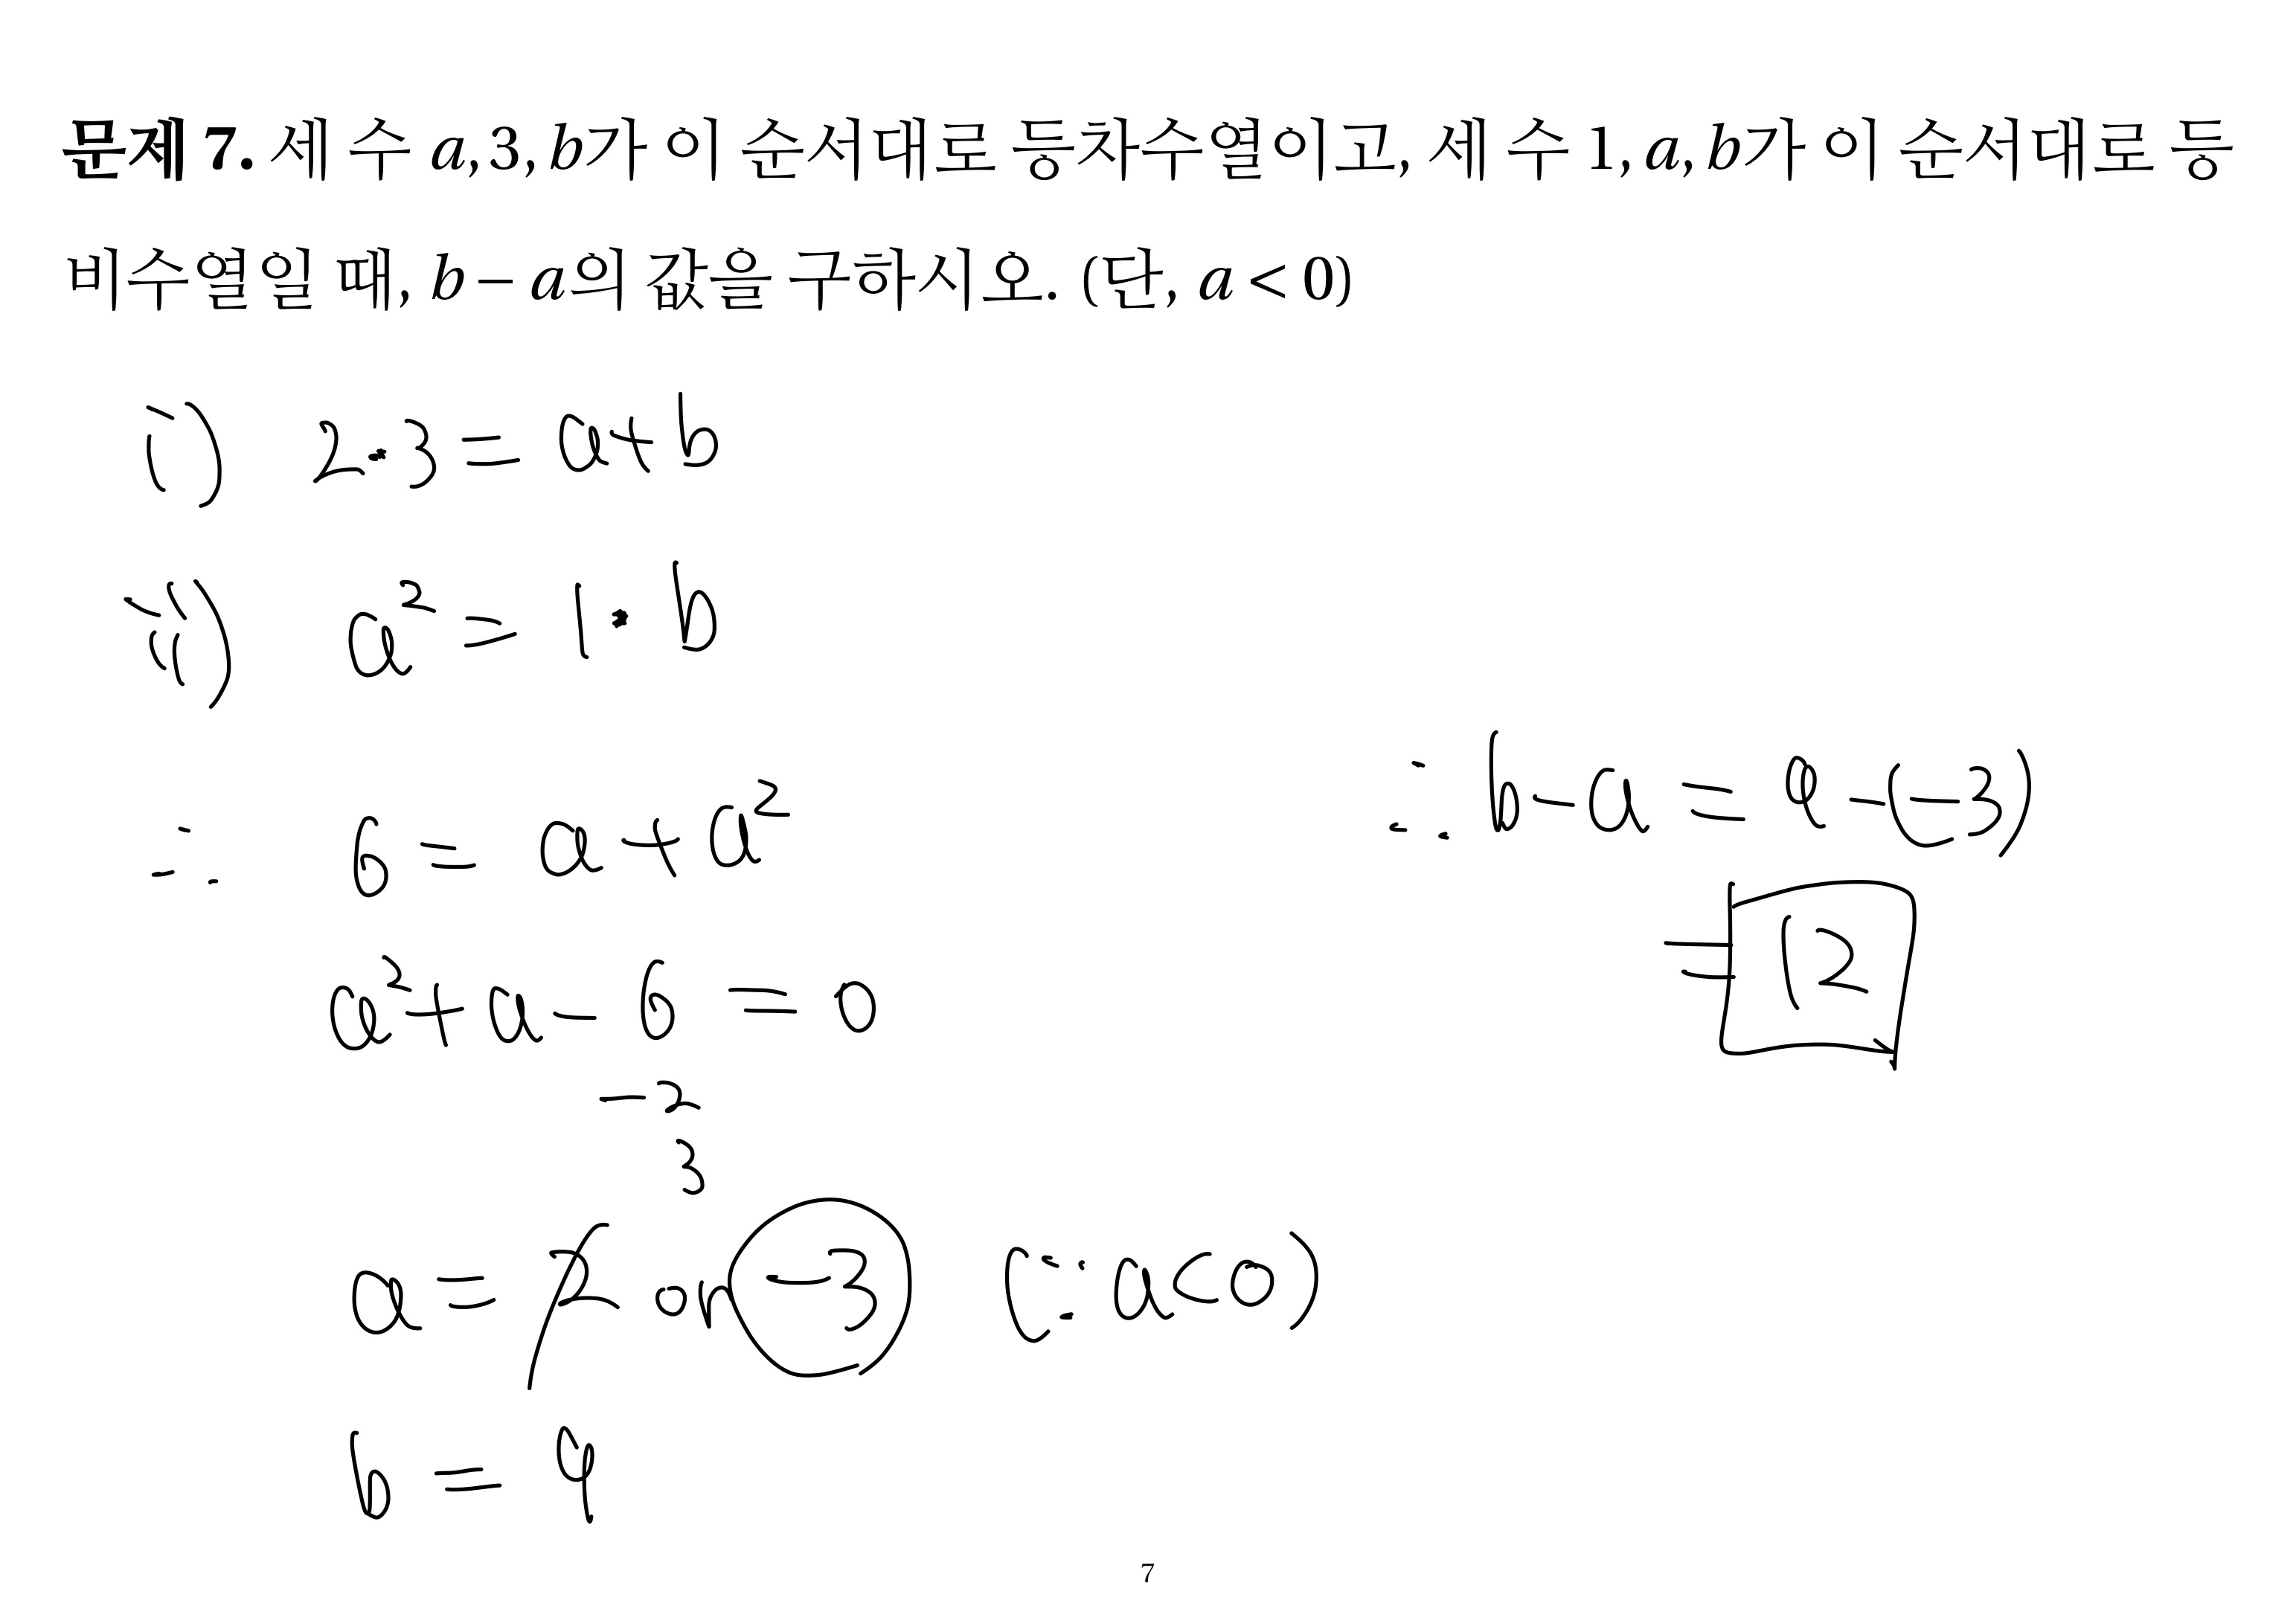 문제 7. 세 수 a, 3, b가 이 순서대로 등차수열이고, 세 수 1, a, b가 이 순서대로 등
비수열일 때, b − a의 값을 구하시오. (단, a < 0)
i) 2·3 = a+b
ii) a² = 1·b
∴ 6 = a + a²
a² + a − 6 = 0
−2
3
a = 2 or −3 (∵ a<0)
b = 9
∴ b−a = 9−(−3)
= 12
7